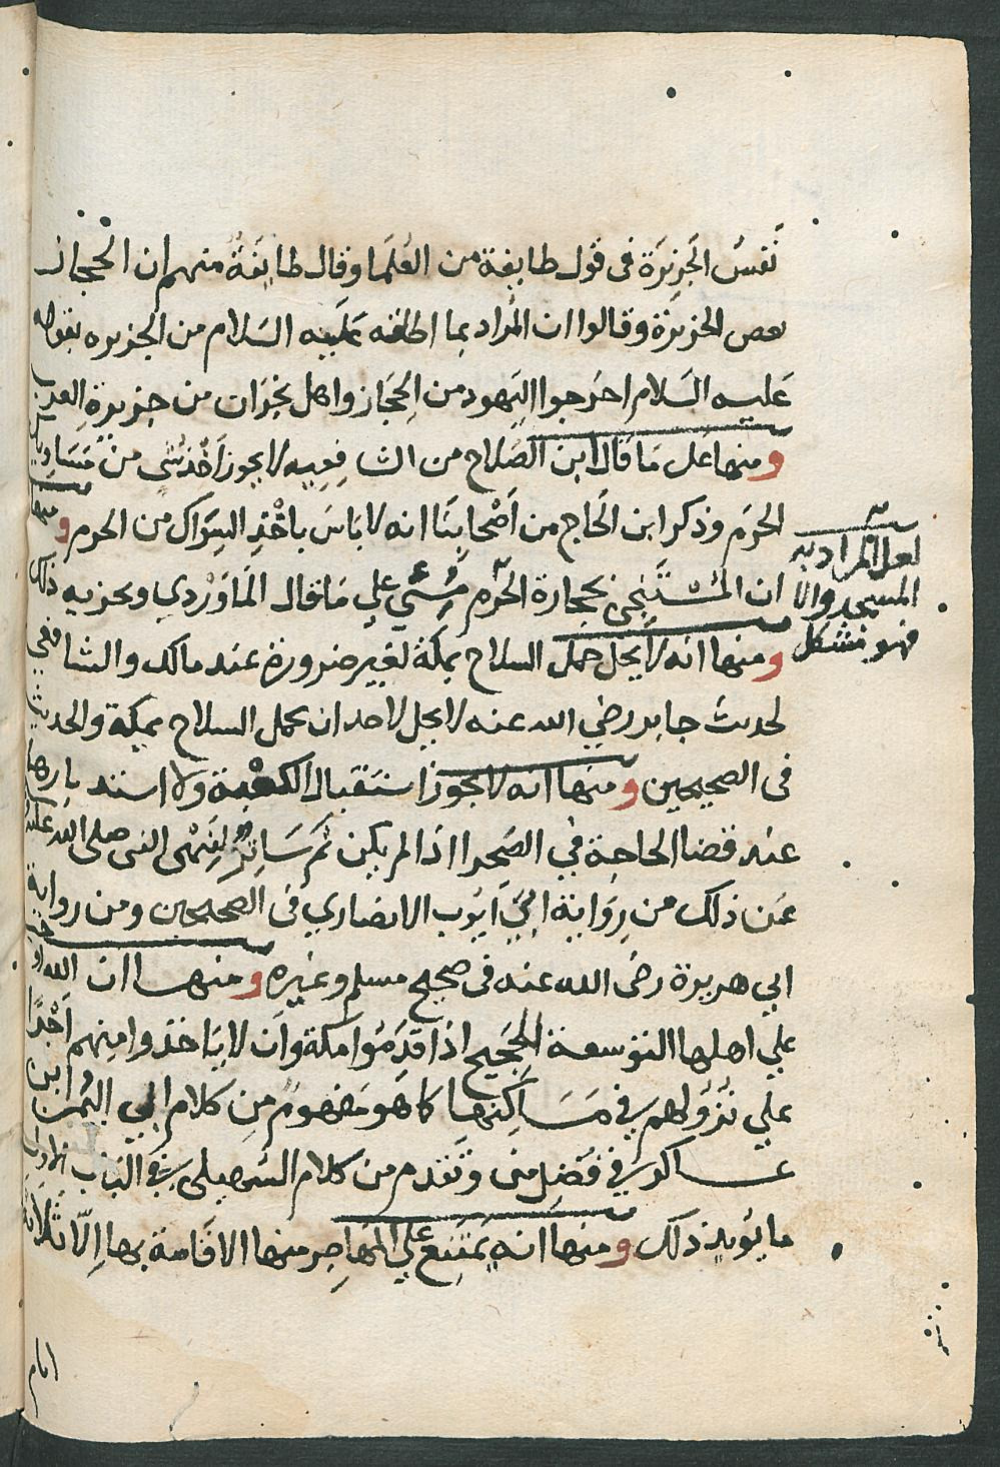 نَفسُ الجَزِيرَة فى قول طايفة من العُلَما وقال طايَفَةُ منهم ان الحجاز
بعض الجزيرة وقالوا ان المُراد بما اطلقه عَلَيه السَلام من الجزيره بقوله
عَليه السَلام اخرجوا اليَهود من الحِجَاز واهل نجرَان من جزيرةِ العرب
ومنها عَلى مَا قال ابن الصَلاح من الشافعيه لا يجوز اَخذ شى من مَسَاويك
الحرَم وذكر ابن الحَاج من اَصْحابنَا انه لا بَاسَ باخْذِ السِوَاك من الحرم ومنها
ان المُسْتَنجى بحجارة الحَرَم مُسِيٌ علي مَا قال المَاوَرْدي ويجزيه ذلك
ومنها انه لا يَحل حمل السلاح بمكَة لغير ضرورة عند مالك والشافعي
لحديث جابر رضي الله عنه لا يحل لاحد ان يحمل السلاح بمكة والحديث
فى الصحيحين ومنها انه لا يجوز استقبال الكعْبة ولا استدبارها
عند قضا الحاجة في الصَحرا اذا لم يكن ثَم سَاتِرٌ لِنَهْى النبى صلى الله عليه
عَن ذلك من رِوَاية ابي اَيُوب الانصاري فى الصحيحين ومن رواية
ابي هريرة رضى الله عنه فى صحيح مسلم وغيره ومنها ان الله اوجب
علي اهلها التوسعة للحَجيج اذا قَدِمُوا مكة وان لا يَاخذوا منهم اَجْرًا
علي نزولهم في مَسَاكِنها كما هَو مَفهومٌ مِن كلام ابي اليُمن ابن
عساكر في فَضل منى وتقدم من كلام السُهيلى في البَاب الاول
ما يُويد ذلك ومنها انه يَمتَنِع علي المُهَاجِر منها الاقَامة بها اِلّا ثلاثة
ايام
لعل المراد به
المسجد والا
فهو مشكل